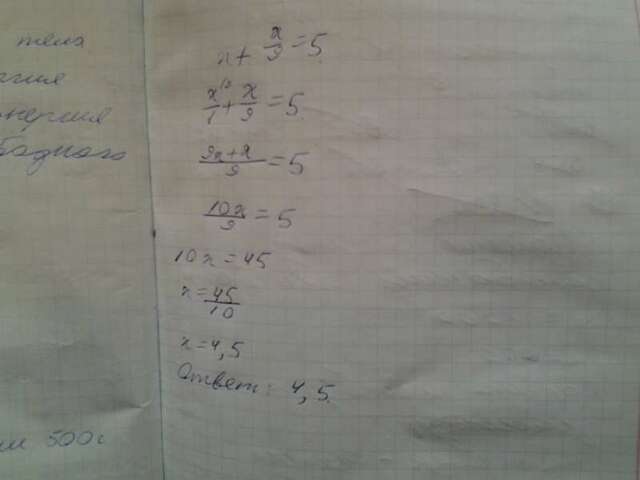 тела
нергия
бодного
500г
x + x/9 = 5
x/1 + x/9 = 5
9x+x/9 = 5
10x/9 = 5
10x = 45
x = 45/10
x = 4,5
Ответ: 4,5.